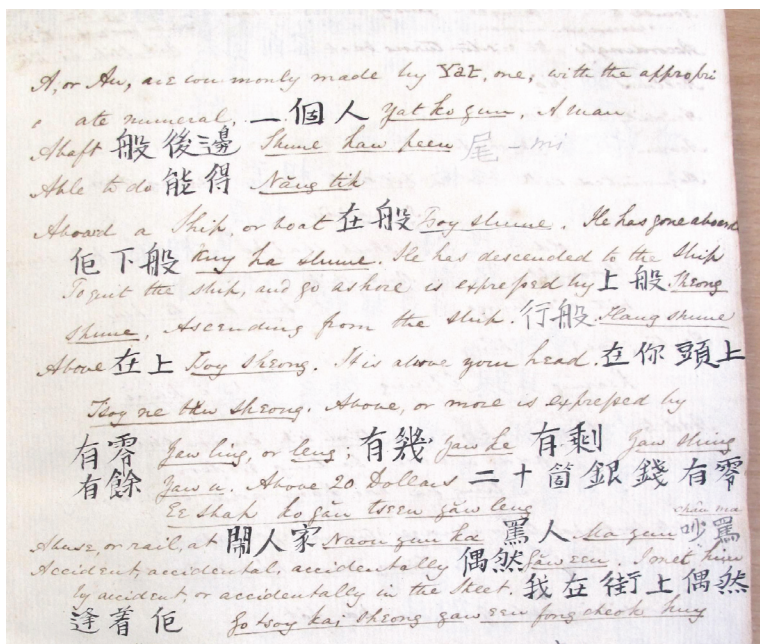 A, or An, are commonly made by Yat, one, with the appropri
ate numeral, 一個人 Yat ko yun, A man
Abaft 船後邊 Shune haw peen 尾 - mi
Able to do 能得 Năng tik
Aboard a Ship, or boat 在船 Tsoy shune. He has gone aboard
佢下船 Kuy ha shune. He has descended to the ship
To quit the ship, and go ashore is expressed by 上船 Sheong
shune, Ascending from the ship. 行船 Hang shune
Above 在上 Tsoy sheong. It is above your head. 在你頭上
Tsoy ne tow sheong. Above, or more is expressed by
有零 Yaw ling, or leng; 有幾 Yaw ke 有剩 Yaw shing
有餘 Yaw u. Above 20 Dollars 二十箇銀錢有零
Ee shap ko găn tseen yăw leng
Abuse, or rail, at 鬧人家 Naou yun ka 罵人 Ma yun 吵罵 chău ma
Accident, accidental, accidentally 偶然 Găw een. I met him
by accident, or accidentally in the street. 我在街上偶然
逢着佢 Go tsoy kai sheong gaw een fong cheok kuy